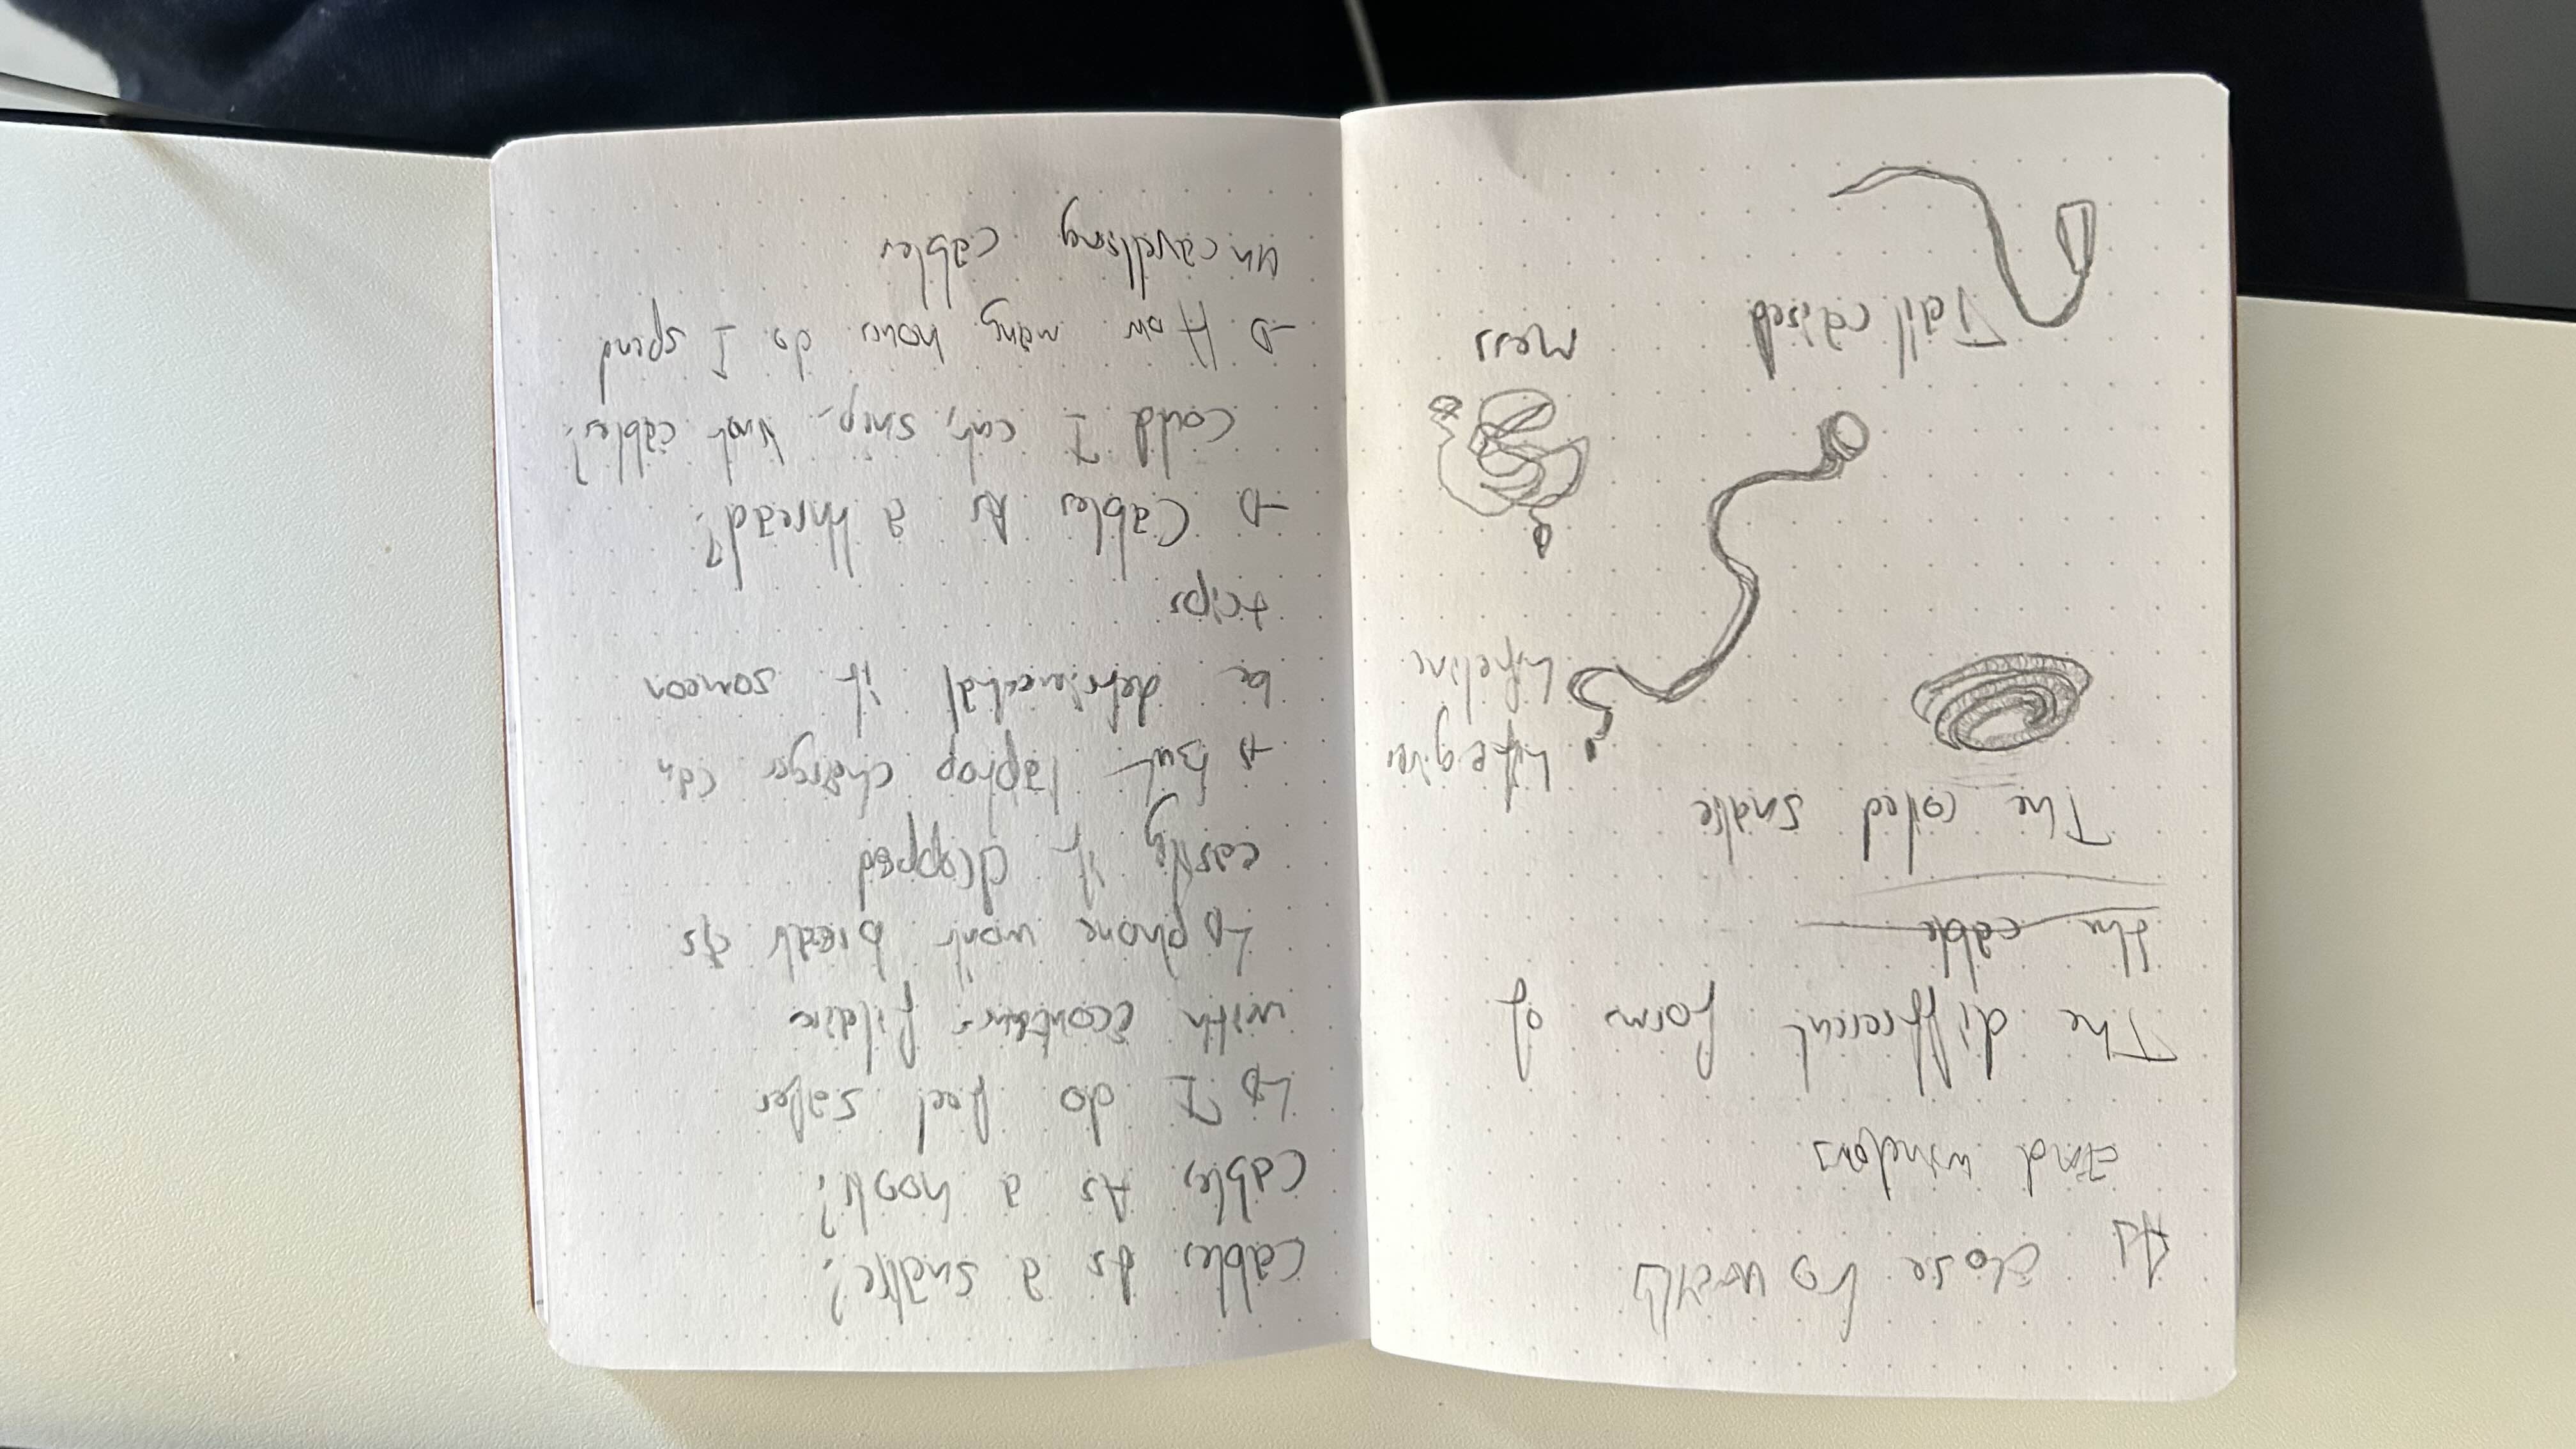 As close to
and windows
The different forms of
the cable
The coiled snake
Lifegiver
Lifeline
Mess
Tail raised
Cables as a snake?
Cables As a hook?
↳ I do feel safer
with filaire
↳ phone won't break as
easily if dropped
→ But laptop charger can
be detrimental if someon
trips
→ Cables As a thread?
Could I cut, snip, knot cables?
→ How many hours do I spend
unravelling cables